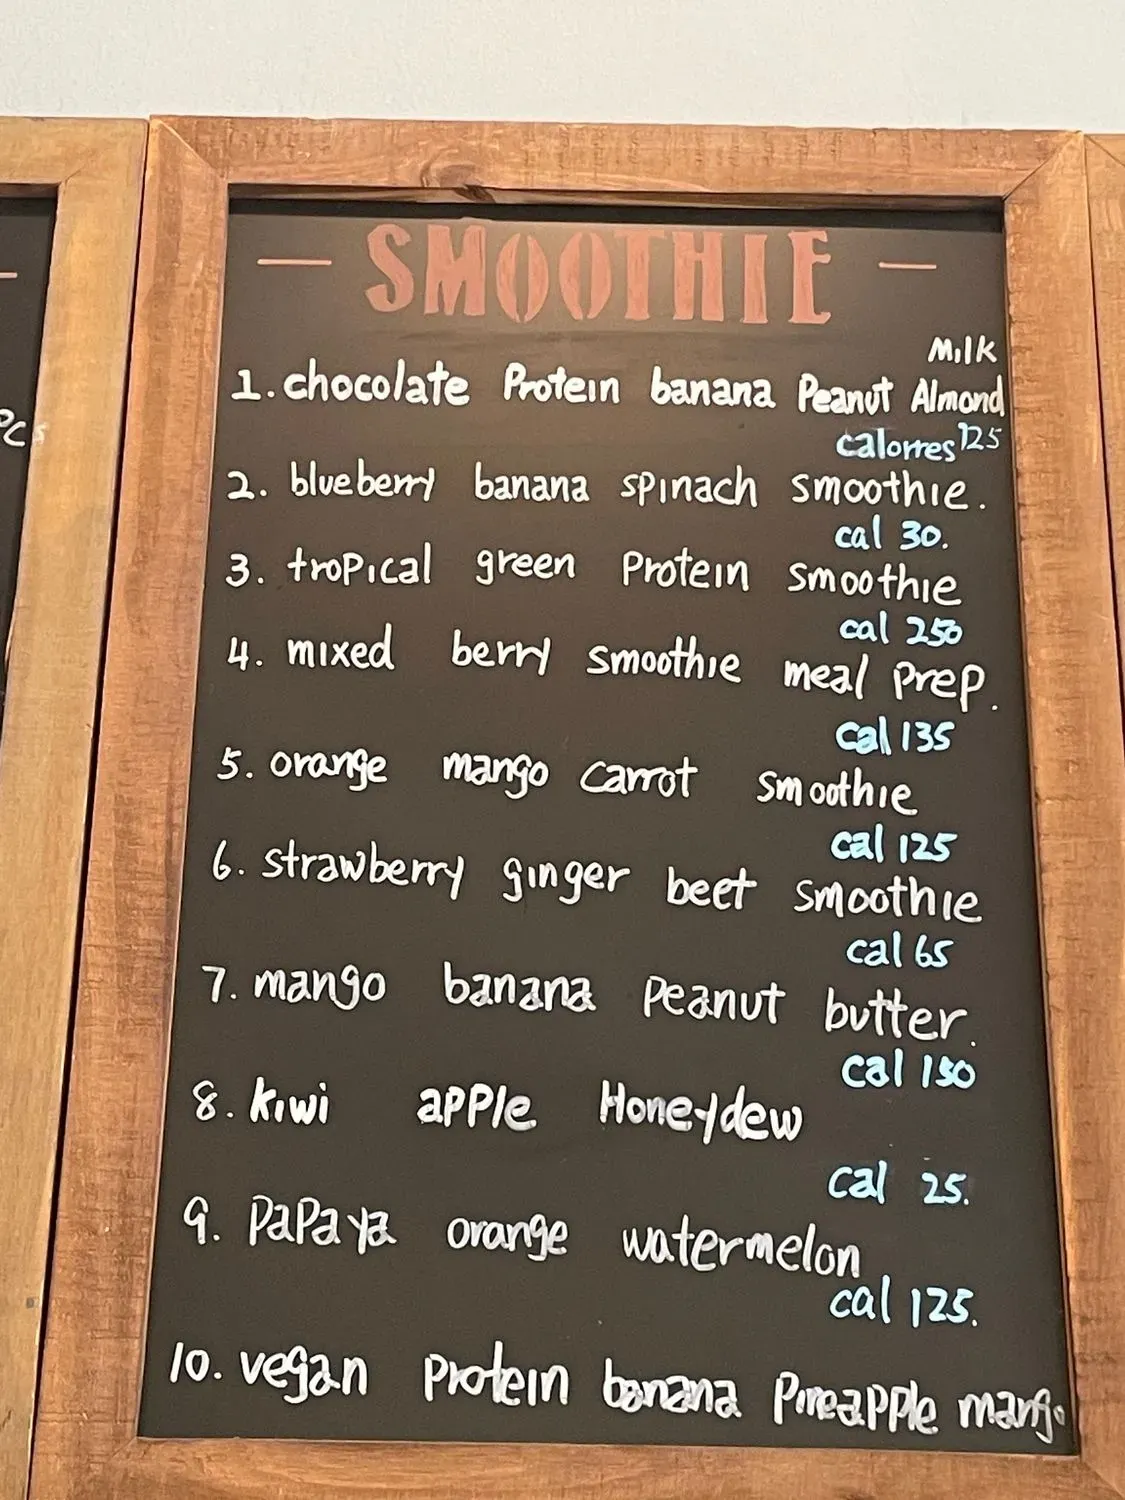 SMOOTHIE
Milk
1. chocolate Protein banana Peanut Almond
calories 125
2. blueberry banana spinach smoothie.
cal 30.
3. tropical green Protein smoothie
cal 250
4. mixed berry smoothie meal prep.
cal 135
5. orange mango carrot smoothie
cal 125
6. strawberry ginger beet smoothie
cal 65
7. mango banana Peanut butter.
cal 150
8. kiwi apple Honeydew
cal 25.
9. PaPaya orange watermelon
cal 125.
10. vegan Protein banana Pineapple mango